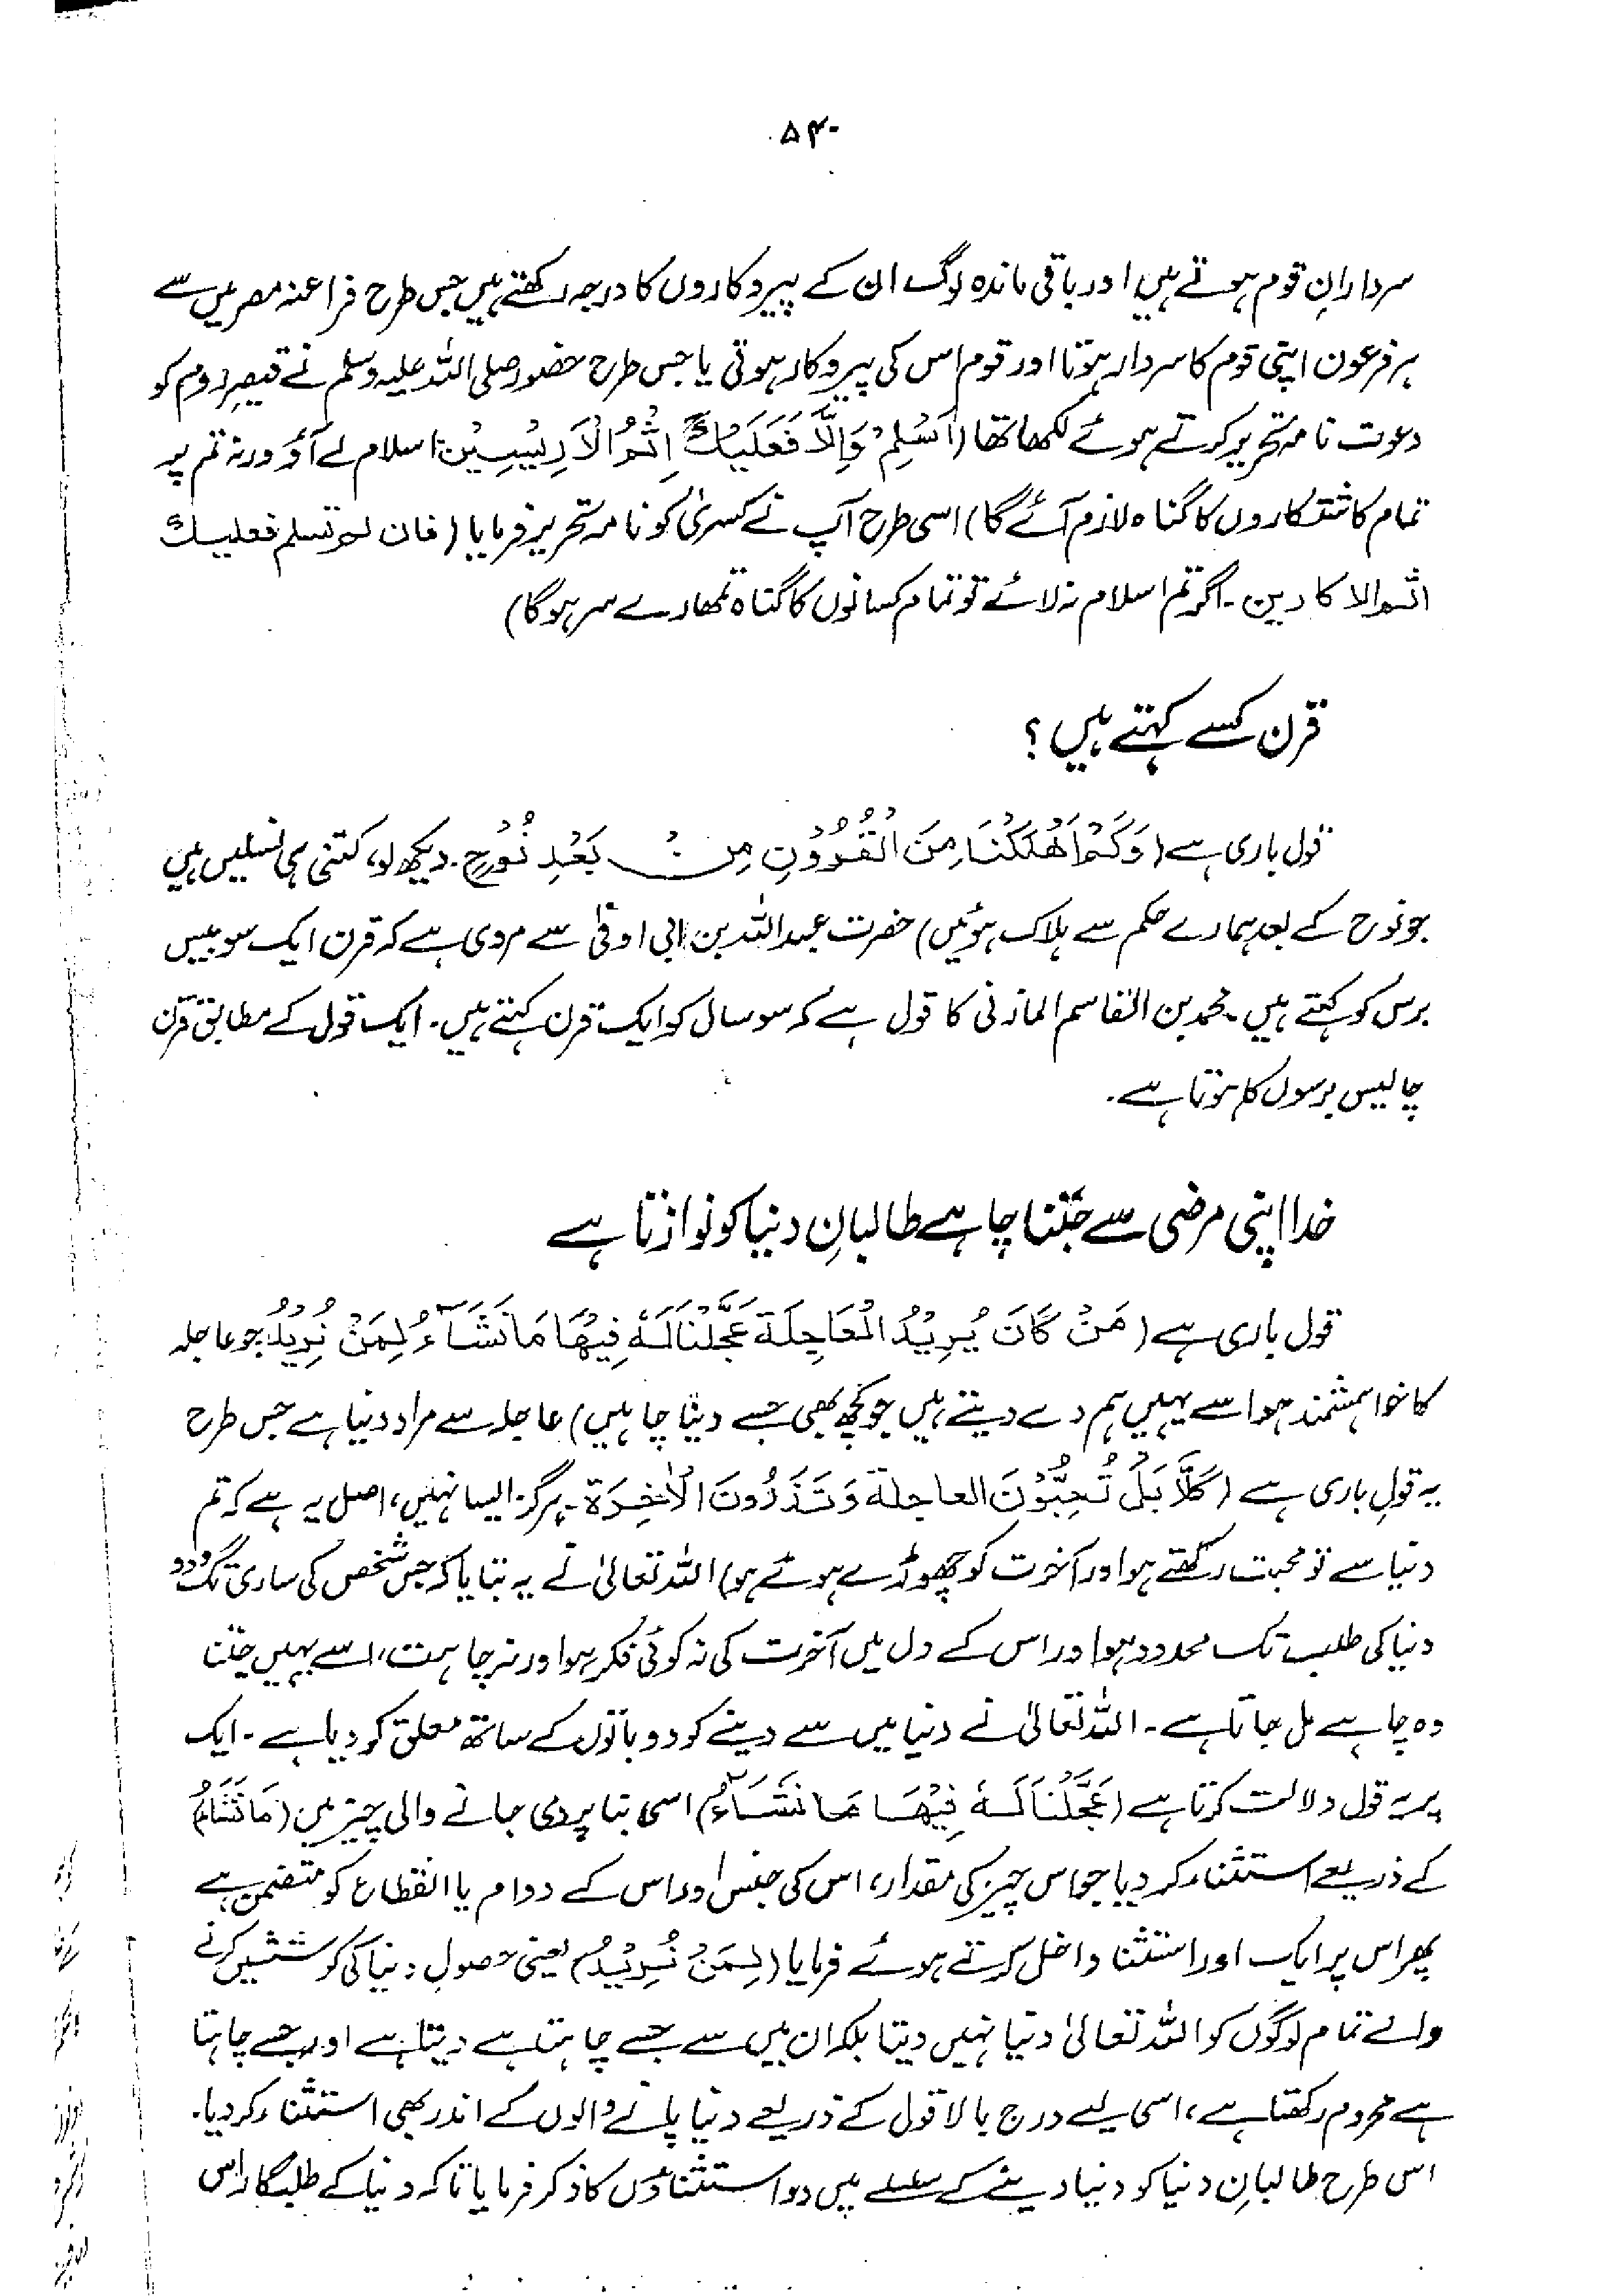 ۵۴۰
سردارانِ قوم ہوتے ہیں اور باقی ماندہ لوگ ان کے پیروکاروں کا درجہ رکھتے ہیں جس طرح فراعنہ مصر میں سے
ہر فرعون اپنی قوم کا سردار ہوتا اور قوم اس کی پیروکار ہوتی یا جس طرح حضور صلی اللہ علیہ وسلم نے قیصرِ روم کو
دعوت نامہ تحریر کرتے ہوئے لکھا تھا (اَسْلِمْ وَاِلَّا فَعَلَيْكَ اِثْمُ الْاَرِيْسِيِيْن؛ اسلام لے آؤ ورنہ تم پر
تمام کاشتکاروں کا گناہ لازم آئے گا) اسی طرح آپ نے کسریٰ کو نامہ تحریر فرمایا (فان لم تسلم فعليك
اثم الاكارين۔ اگر تم اسلام نہ لائے تو تمام کسانوں کا گناہ تمھارے سر ہوگا)
قرن کسے کہتے ہیں؟
قول باری ہے (وَكَمْ اَهْلَكْنَا مِنَ الْقُرُوْنِ مِنْ بَعْدِ نُوْحٍ۔ دیکھ لو، کتنی ہی نسلیں ہیں
جو نوح کے بعد ہمارے حکم سے ہلاک ہوئیں) حضرت عبداللہ بن ابی اوفیٰ سے مروی ہے کہ قرن ایک سو بیس
برس کو کہتے ہیں۔ محمد بن القاسم المازنی کا قول ہے کہ سو سال کو ایک قرن کہتے ہیں۔ ایک قول کے مطابق قرن
چالیس برسوں کا ہوتا ہے۔
خدا اپنی مرضی سے جتنا چاہے طالبانِ دنیا کو نوازتا ہے
قول باری ہے (مَنْ كَانَ يُرِيْدُ الْعَاجِلَةَ عَجَّلْنَا لَهٗ فِيْهَا مَا نَشَآءُ لِمَنْ نُرِيْدُ؛ جو عاجلہ
کا خواہشمند ہو اسے یہیں ہم دے دیتے ہیں جو کچھ بھی جسے دینا چاہیں) عاجلہ سے مراد دنیا ہے جس طرح
یہ قولِ باری ہے (كَلَّا بَلْ تُحِبُّوْنَ العاجلةَ وَتَذَرُوْنَ الْاٰخِرَةَ۔ ہرگز ایسا نہیں، اصل یہ ہے کہ تم
دنیا سے تو محبت رکھتے ہو اور آخرت کو چھوڑے ہوئے ہو) اللہ تعالیٰ نے یہ بتایا کہ جس شخص کی ساری تگ و دو
دنیا کی طلب تک محدود ہو اور اس کے دل میں آخرت کی نہ کوئی فکر ہو اور نہ چاہت، اسے یہیں جتنا
وہ چاہے مل جاتا ہے۔ اللہ تعالیٰ نے دنیا میں سے دینے کو دو باتوں کے ساتھ معلق کر دیا ہے۔ ایک
پر یہ قول دلالت کرتا ہے (عَجَّلْنَا لَهٗ فِيْهَا مَا نَشَآءُ) اسی بنا پر دی جانے والی چیز میں (مَا نَشَآءُ)
کے ذریعے استثناء کر دیا جو اس چیز کی مقدار، اس کی جنس اور اس کے دوام یا انقطاع کو متضمن ہے
پھر اس پر ایک اور استثنا داخل کرتے ہوئے فرمایا (لِمَنْ نُرِيْدُ) یعنی حصولِ دنیا کی کوششیں کرنے
والے تمام لوگوں کو اللہ تعالیٰ دنیا نہیں دیتا بلکہ ان میں سے جسے چاہتا ہے دیتا ہے اور جسے چاہتا
ہے محروم رکھتا ہے، اسی لیے درج بالا قول کے ذریعے دنیا پانے والوں کے اندر بھی استثناء کر دیا۔
اس طرح طالبانِ دنیا کو دنیا دینے کے سلسلے میں دو استثناؤں کا ذکر فرمایا تاکہ دنیا کے طلبگار اس